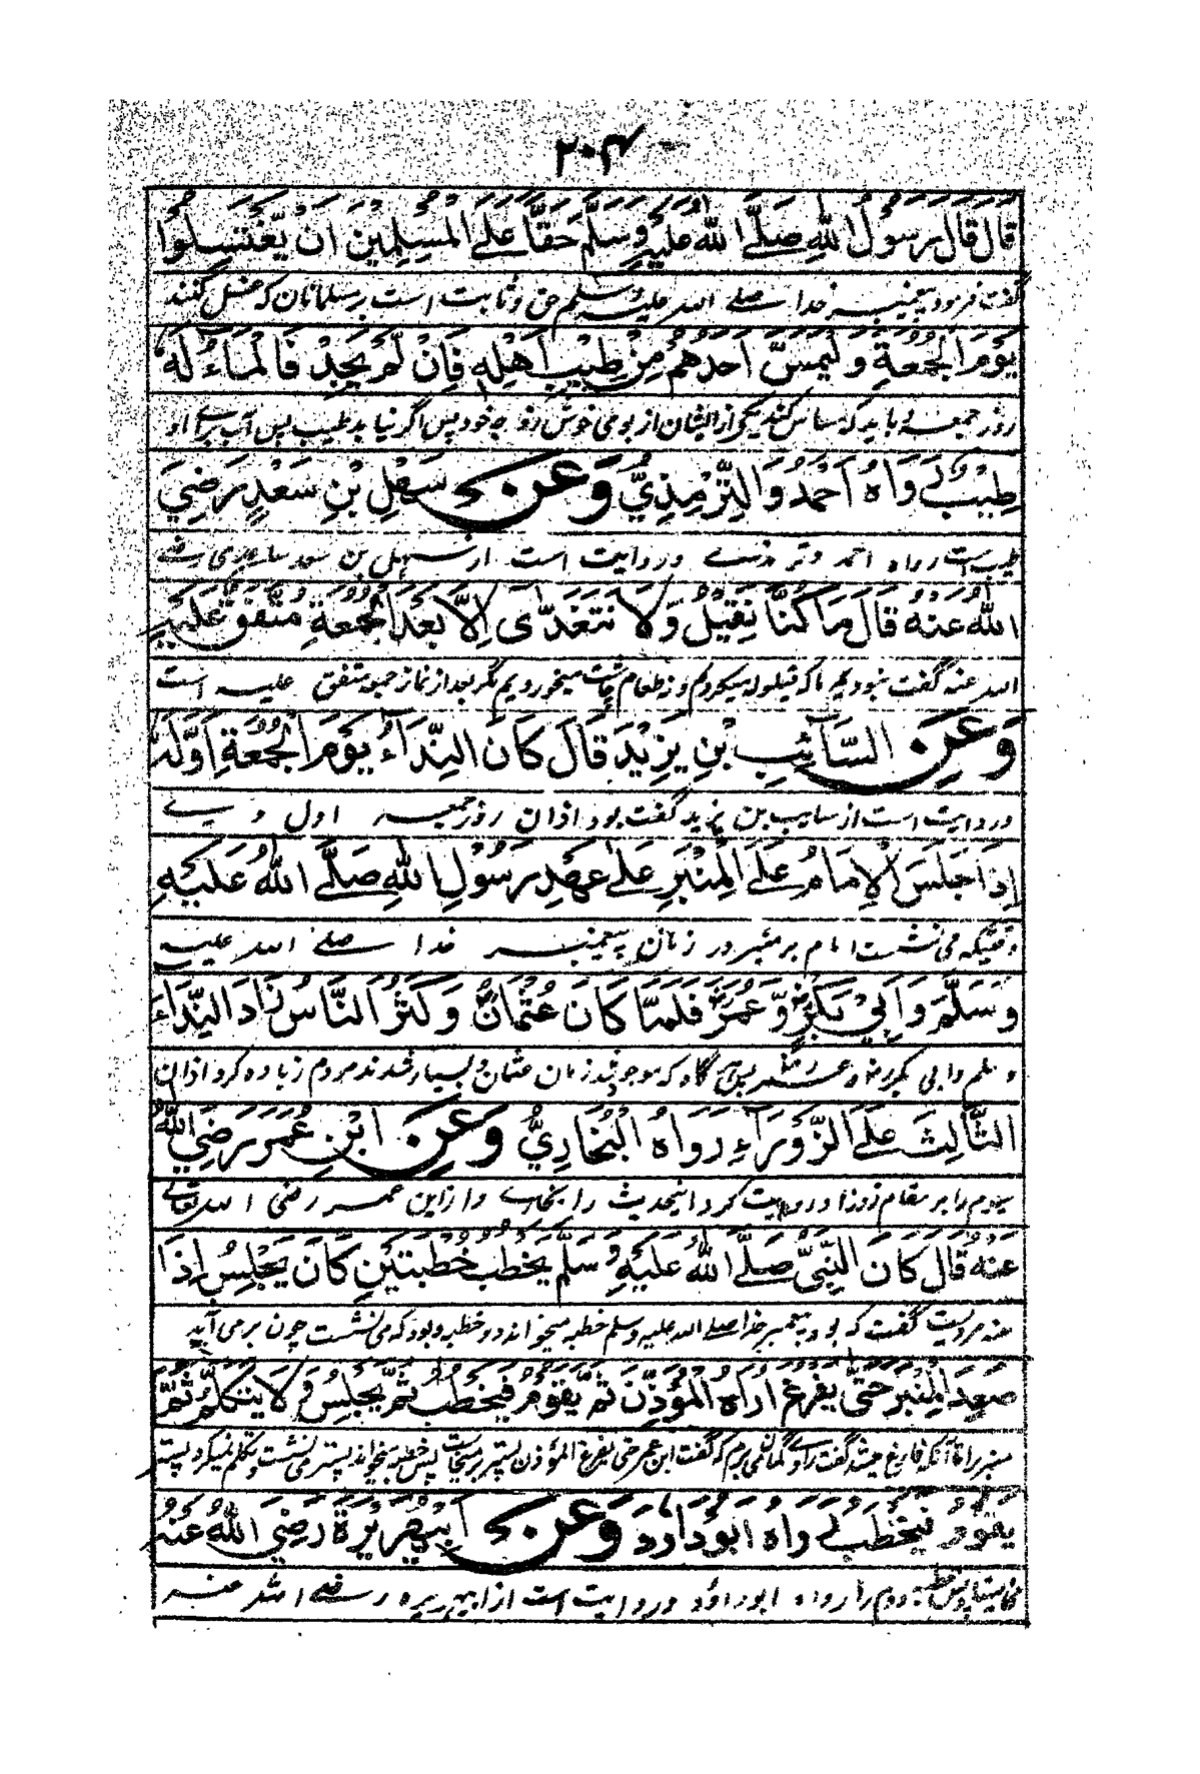 ۲۰۴
قَالَ قَالَ رَسُوْلُ اللّٰهِ صَلَّى اللّٰهُ عَلَيْهِ وَسَلَّمَ حَقًّا عَلَى الْمُسْلِمِيْنَ اَنْ يَّغْتَسِلُوْا
گفت فرمود پیغمبر خدا صلے الله علیه وسلم حق و ثابت است بر مسلمانان که غسل کنند
يَوْمَ الْجُمُعَةِ وَلْيَمَسَّ اَحَدُهُمْ مِنْ طِيْبِ اَهْلِهٖ فَاِنْ لَّمْ يَجِدْ فَالْمَاءُ لَهٗ
روز جمعه و باید که مساس کند یکی از ایشان از بوی خوش زوجه خود پس اگر نیابد طیب پس آب برائے او
طِيْبٌ رَوَاهُ اَحْمَدُ وَالتِّرْمِذِيُّ وَعَنْ سَهْلِ بْنِ سَعْدٍ رَضِيَ
طیب است رواه احمد و ترمذے و روایت است از سهل بن سعد ساعدی رضے
اللّٰهُ عَنْهُ قَالَ مَا كُنَّا نَقِيْلُ وَلَا نَتَغَدّٰى اِلَّا بَعْدَ الْجُمُعَةِ مُتَّفَقٌ عَلَيْهِ
الله عنه گفت نبودیم ما که قیلوله میکردیم و نه طعام چاشت میخوردیم مگر بعد از نماز جمعه متفق علیه است
وَعَنِ السَّآئِبِ بْنِ يَزِيْدَ قَالَ كَانَ النِّدَآءُ يَوْمَ الْجُمُعَةِ اَوَّلُهٗ
و روایت است از سایب بن یزید گفت بود اذان روز جمعه اول وے
اِذَا جَلَسَ الْاِمَامُ عَلَى الْمِنْبَرِ عَلٰى عَهْدِ رَسُوْلِ اللّٰهِ صَلَّى اللّٰهُ عَلَيْهِ
وقتیکه می نشست امام بر منبر در زمان پیغمبر خدا صلے الله علیه
وَسَلَّمَ وَاَبِيْ بَكْرٍ وَّعُمَرَ فَلَمَّا كَانَ عُثْمَانُ وَكَثُرَ النَّاسُ زَادَ النِّدَآءَ
وسلم و ابی بکر و عمر پس هرگاه که موجود شد زمان عثمان و بسیار شدند مردم زیاده کرد اذان
الثَّالِثَ عَلَى الزَّوْرَآءِ رَوَاهُ الْبُخَارِيُّ وَعَنِ ابْنِ عُمَرَ رَضِيَ اللّٰهُ
سوم را بر مقام زورا و روایت کرد اینحدیث را بخارے و از ابن عمر رضی الله تعالے
عَنْهُ قَالَ كَانَ النَّبِيُّ صَلَّى اللّٰهُ عَلَيْهِ وَسَلَّمَ يَخْطُبُ خُطْبَتَيْنِ كَانَ يَجْلِسُ اِذَا
عنه مرویست گفت که بود پیغمبر خدا صلے الله علیه وسلم خطبه میخواند دو خطبه و بود که می نشست چون بر می آید
صَعِدَ الْمِنْبَرَ حَتّٰى يَفْرُغَ اُرَاهُ الْمُؤَذِّنَ ثُمَّ يَقُوْمُ فَيَخْطُبُ ثُمَّ يَجْلِسُ وَلَا يَتَكَلَّمُ ثُمَّ
منبر را تا آنکه فارغ گفت که گفت ابن عمر حتی یفرغ المؤذن پستر پس خطبه میخواند پستر می نشست و تکلم نمیکرد پستر
يَقُوْمُ فَيَخْطُبُ رَوَاهُ اَبُوْدَاوٗدَ وَعَنْ اَبِيْ هُرَيْرَةَ رَضِيَ اللّٰهُ عَنْهُ
دوم را رواه ابوداؤد و روایت است از ابی هریره رضے الله عنه